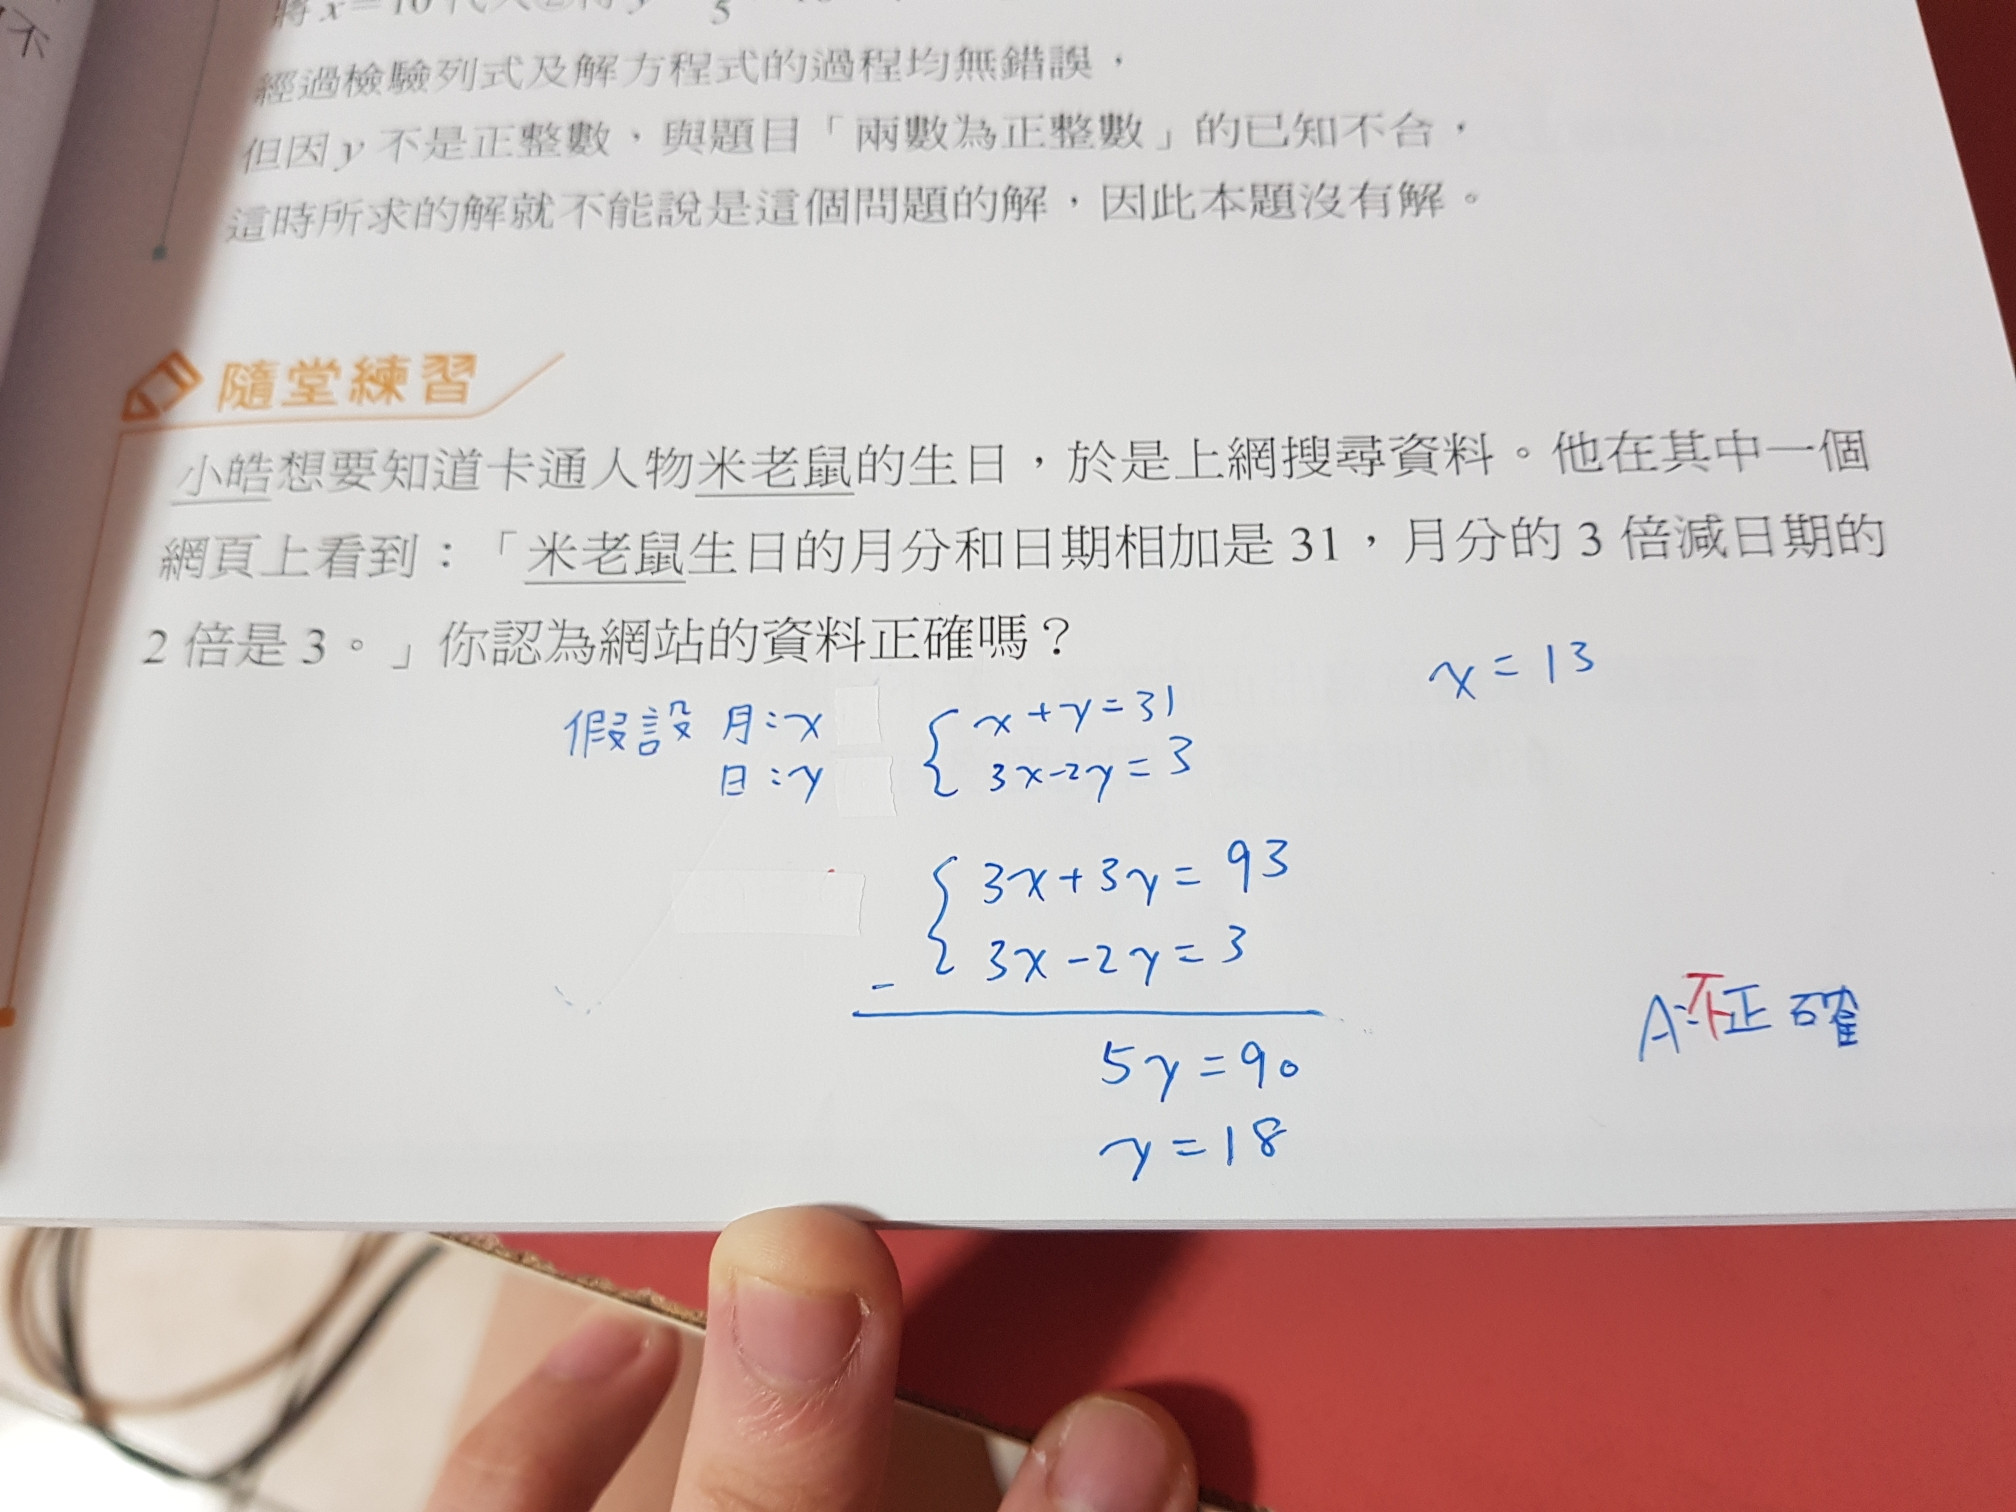 將 x=10 代入②得 y
5
經過檢驗列式及解方程式的過程均無錯誤，
但因 y 不是正整數，與題目「兩數為正整數」的已知不合，
這時所求的解就不能說是這個問題的解，因此本題沒有解。
隨堂練習
小皓想要知道卡通人物米老鼠的生日，於是上網搜尋資料。他在其中一個
網頁上看到：「米老鼠生日的月分和日期相加是 31，月分的 3 倍減日期的
2 倍是 3。」你認為網站的資料正確嗎？
x=13
假設 月:x
日:y
x+y=31
3x-2y=3
3x+3y=93
3x-2y=3
-
5y=90
y=18
A:不正確